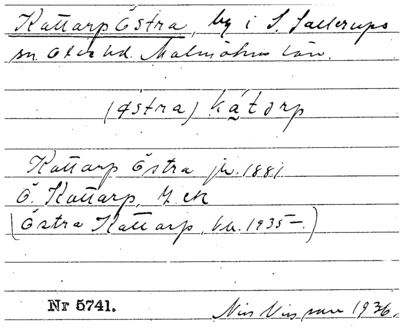 Kattarp Östra, by i S. Sallerups
sn Oxie hd. Malmöhus län.
(östra) kátorp
Kattarp Östra jb. 1881
Ö. Kattarp, ek
(Östra Kattarp, 1935–.)
Nr 5741.
Nils Nilsson 1936.